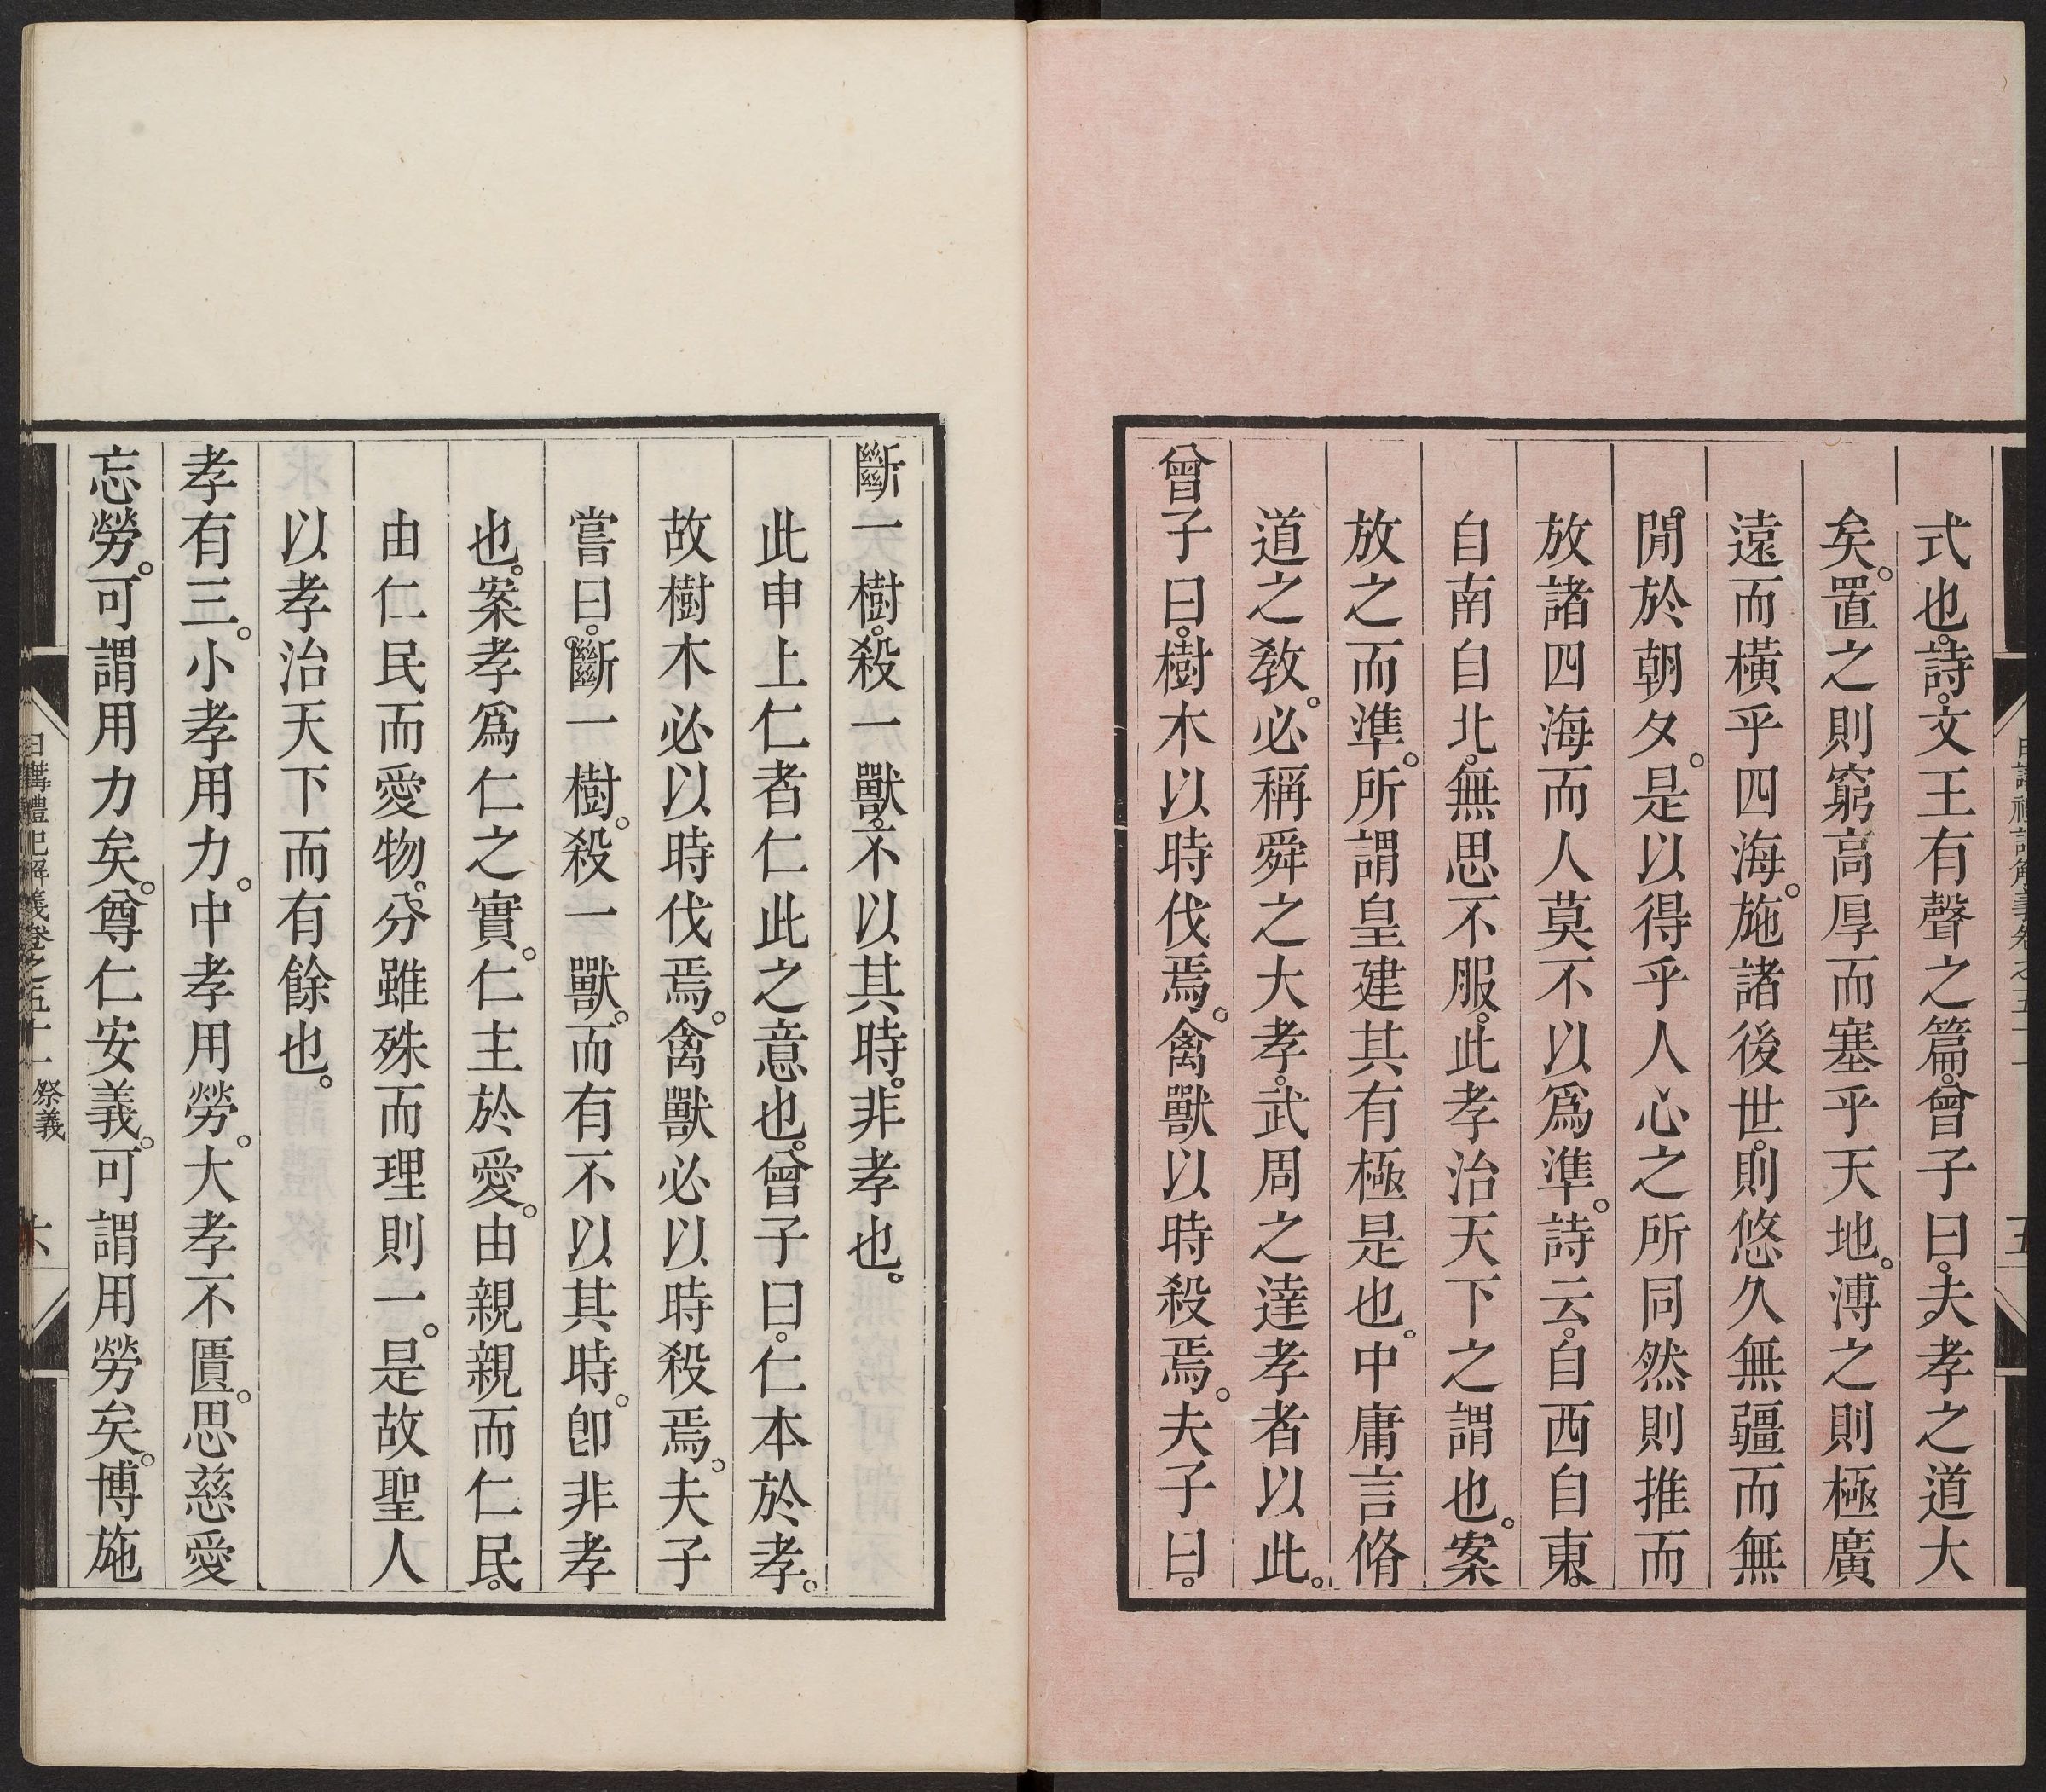 式也。詩。文王有聲之篇。曾子曰。夫孝之道大
矣。置之則窮高厚而塞乎天地。溥之則極廣
遠而橫乎四海。施諸後世。則悠久無疆而無
閒於朝夕。是以得乎人心之所同然則推而
放諸四海而人莫不以爲準。詩云。自西自東。
自南自北。無思不服。此孝治天下之謂也。案
放之而準。所謂皇建其有極是也。中庸言脩
道之敎。必稱舜之大孝。武周之達孝者以此。
曾子曰。樹木以時伐焉。禽獸以時殺焉。夫子曰。
斷一樹。殺一獸。不以其時。非孝也。
此申上仁者仁此之意也。曾子曰。仁本於孝。
故樹木必以時伐焉。禽獸必以時殺焉。夫子
嘗曰。斷一樹。殺一獸。而有不以其時。卽非孝
也。案孝爲仁之實。仁主於愛。由親親而仁民。
由仁民而愛物。分雖殊而理則一。是故聖人
以孝治天下而有餘也。
孝有三。小孝用力。中孝用勞。大孝不匱。思慈愛
忘勞。可謂用力矣。尊仁安義。可謂用勞矣。博施
日講禮記解義卷之五十一 祭義 六